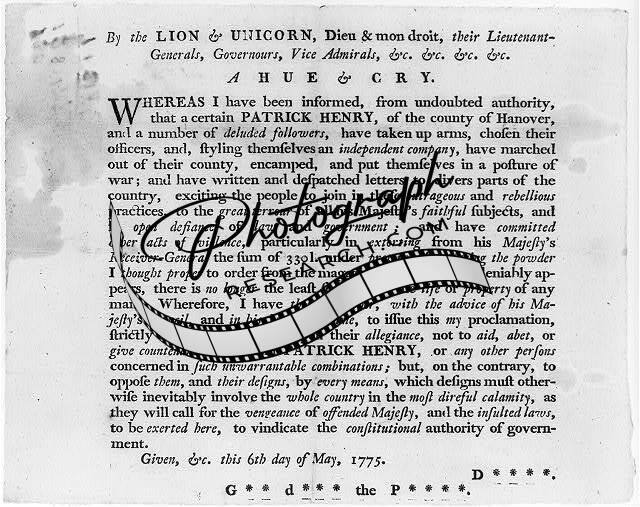 By the LION & UNICORN, Dieu & mon droit, their Lieutenant-
Generals, Governours, Vice Admirals, &c. &c. &c. &c.
A HUE & CRY.
WHEREAS I have been informed, from undoubted authority,
that a certain PATRICK HENRY, of the county of Hanover,
and a number of deluded followers, have taken up arms, choſen their
officers, and, ſtyling themſelves an independent company, have marched
out of their county, encamped, and put themſelves in a poſture of
war; and have written and deſpatched letters to divers parts of the
country, exciting the people to join in outrageous and rebellious
practices, to the great terrour of all his Majeſty's faithful ſubjects, and
open defiance of law and government; and have committed
other acts of violence, particularly in extorting from his Majeſty's
Receiver-General the ſum of 330l. under the powder
I thought proper to order from the undeniably ap-
pears, there is no longer the leaſt life or property of any
man. Wherefore, I have with the advice of his Ma-
jeſty's and in his to iſſue this my proclamation,
ſtrictly their allegiance, not to aid, abet, or
give PATRICK HENRY, or any other perſons
concerned in ſuch unwarrantable combinations; but, on the contrary, to
oppoſe them, and their deſigns, by every means, which deſigns muſt other-
wiſe inevitably involve the whole country in the moſt direful calamity, as
they will call for the vengeance of offended Majeſty, and the inſulted laws,
to be exerted here, to vindicate the conſtitutional authority of govern-
ment.
Given, &c. this 6th day of May, 1775.
D * * * *.
G** d*** the P****.
Photograph
RESEARCH.COM